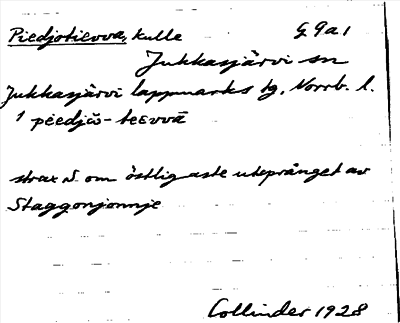 Piedjotievva, kulle G 9 a 1
Jukkasjärvi sn
Jukkasjärvi lappmarks tg, Norrb. l.
strax N. om östligaste utsprånget av
Staggonjonnje
Collinder 1928